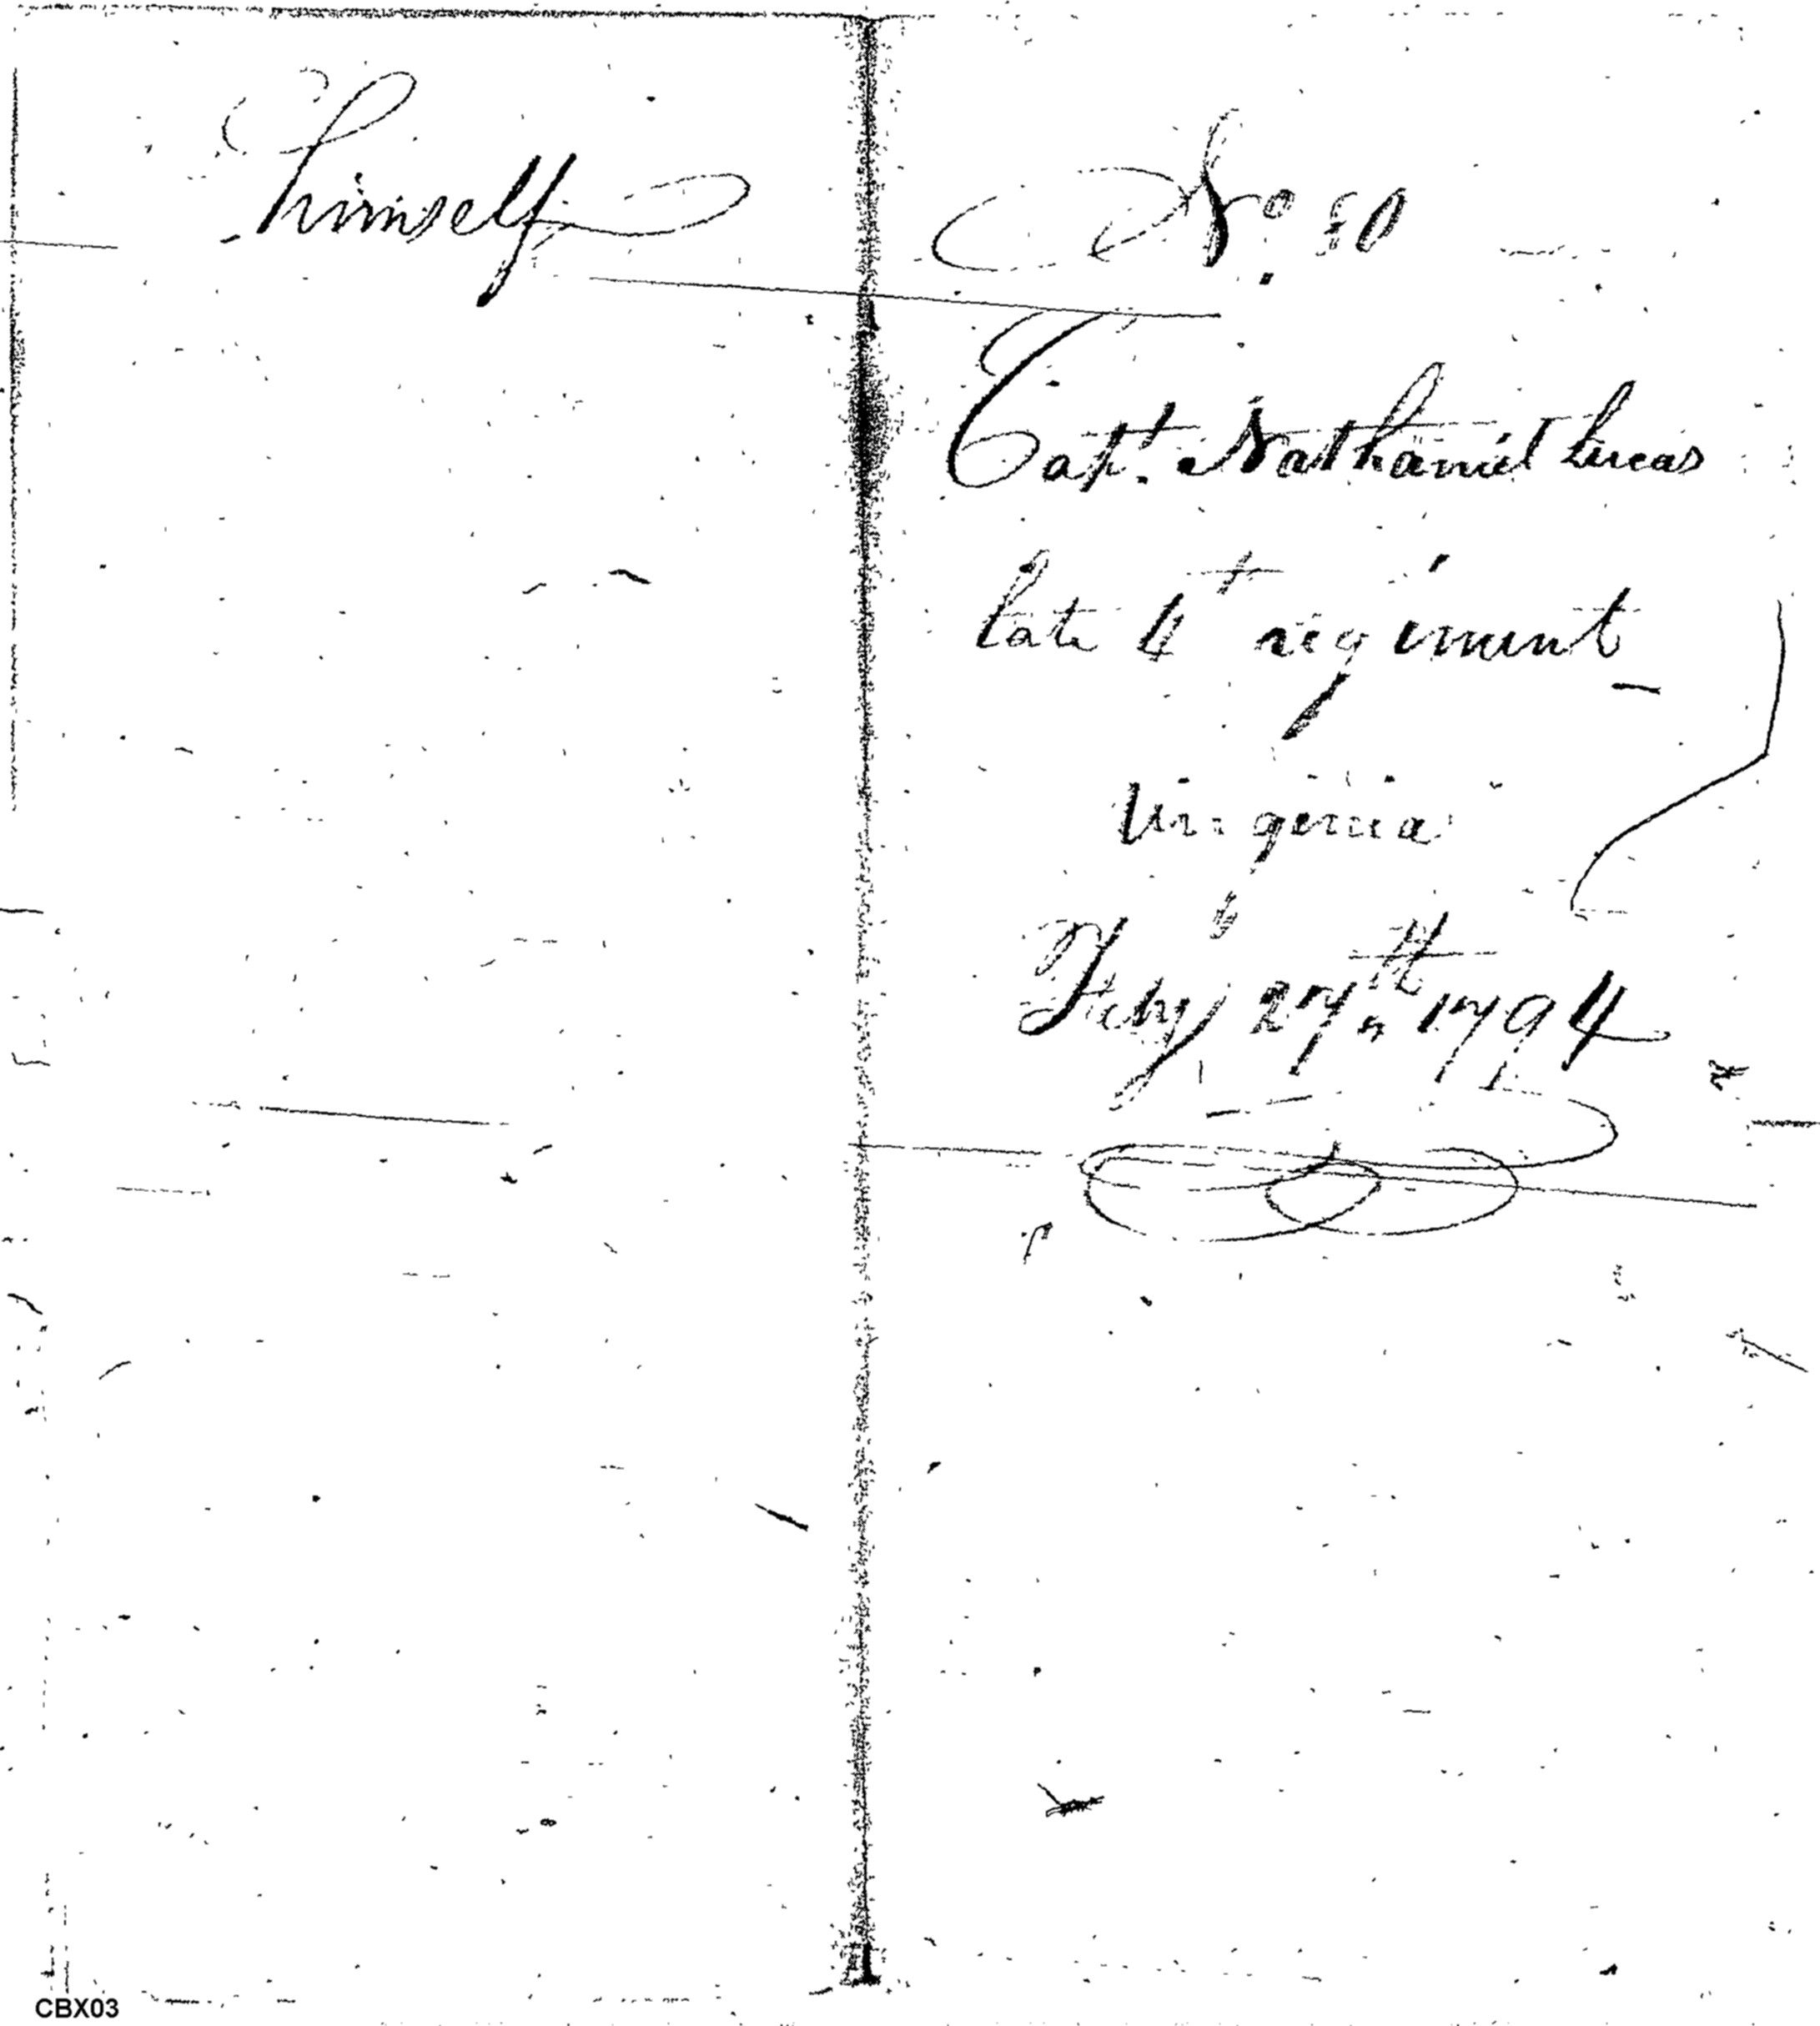 himself
No. 80
Capt. Nathaniel Lucas
late 4th regiment
Virginia
Feby 27th 1794
CBX03